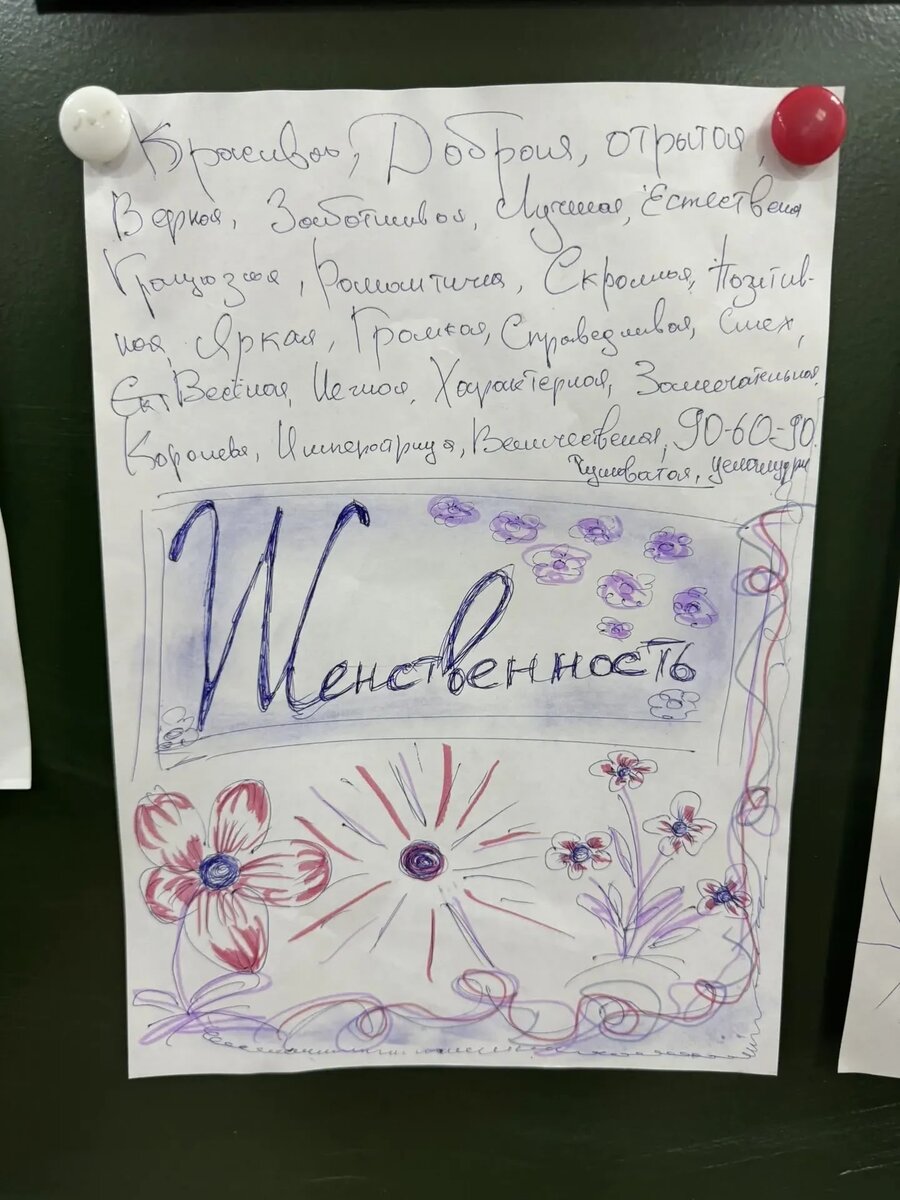 Красивая, Добрая, отрытая,
Верная, Заботливая, Лучшая, Естествена
Грациозная, Романтична, Скромная, Позитив-
ная, Яркая, Громкая, Справедливая, Смех,
Весёлая, Нежная, Характерная, Замечательная,
Королева, Императрица, Величественая, 90-60-90.
Чушковатая, целомудри
Женственность